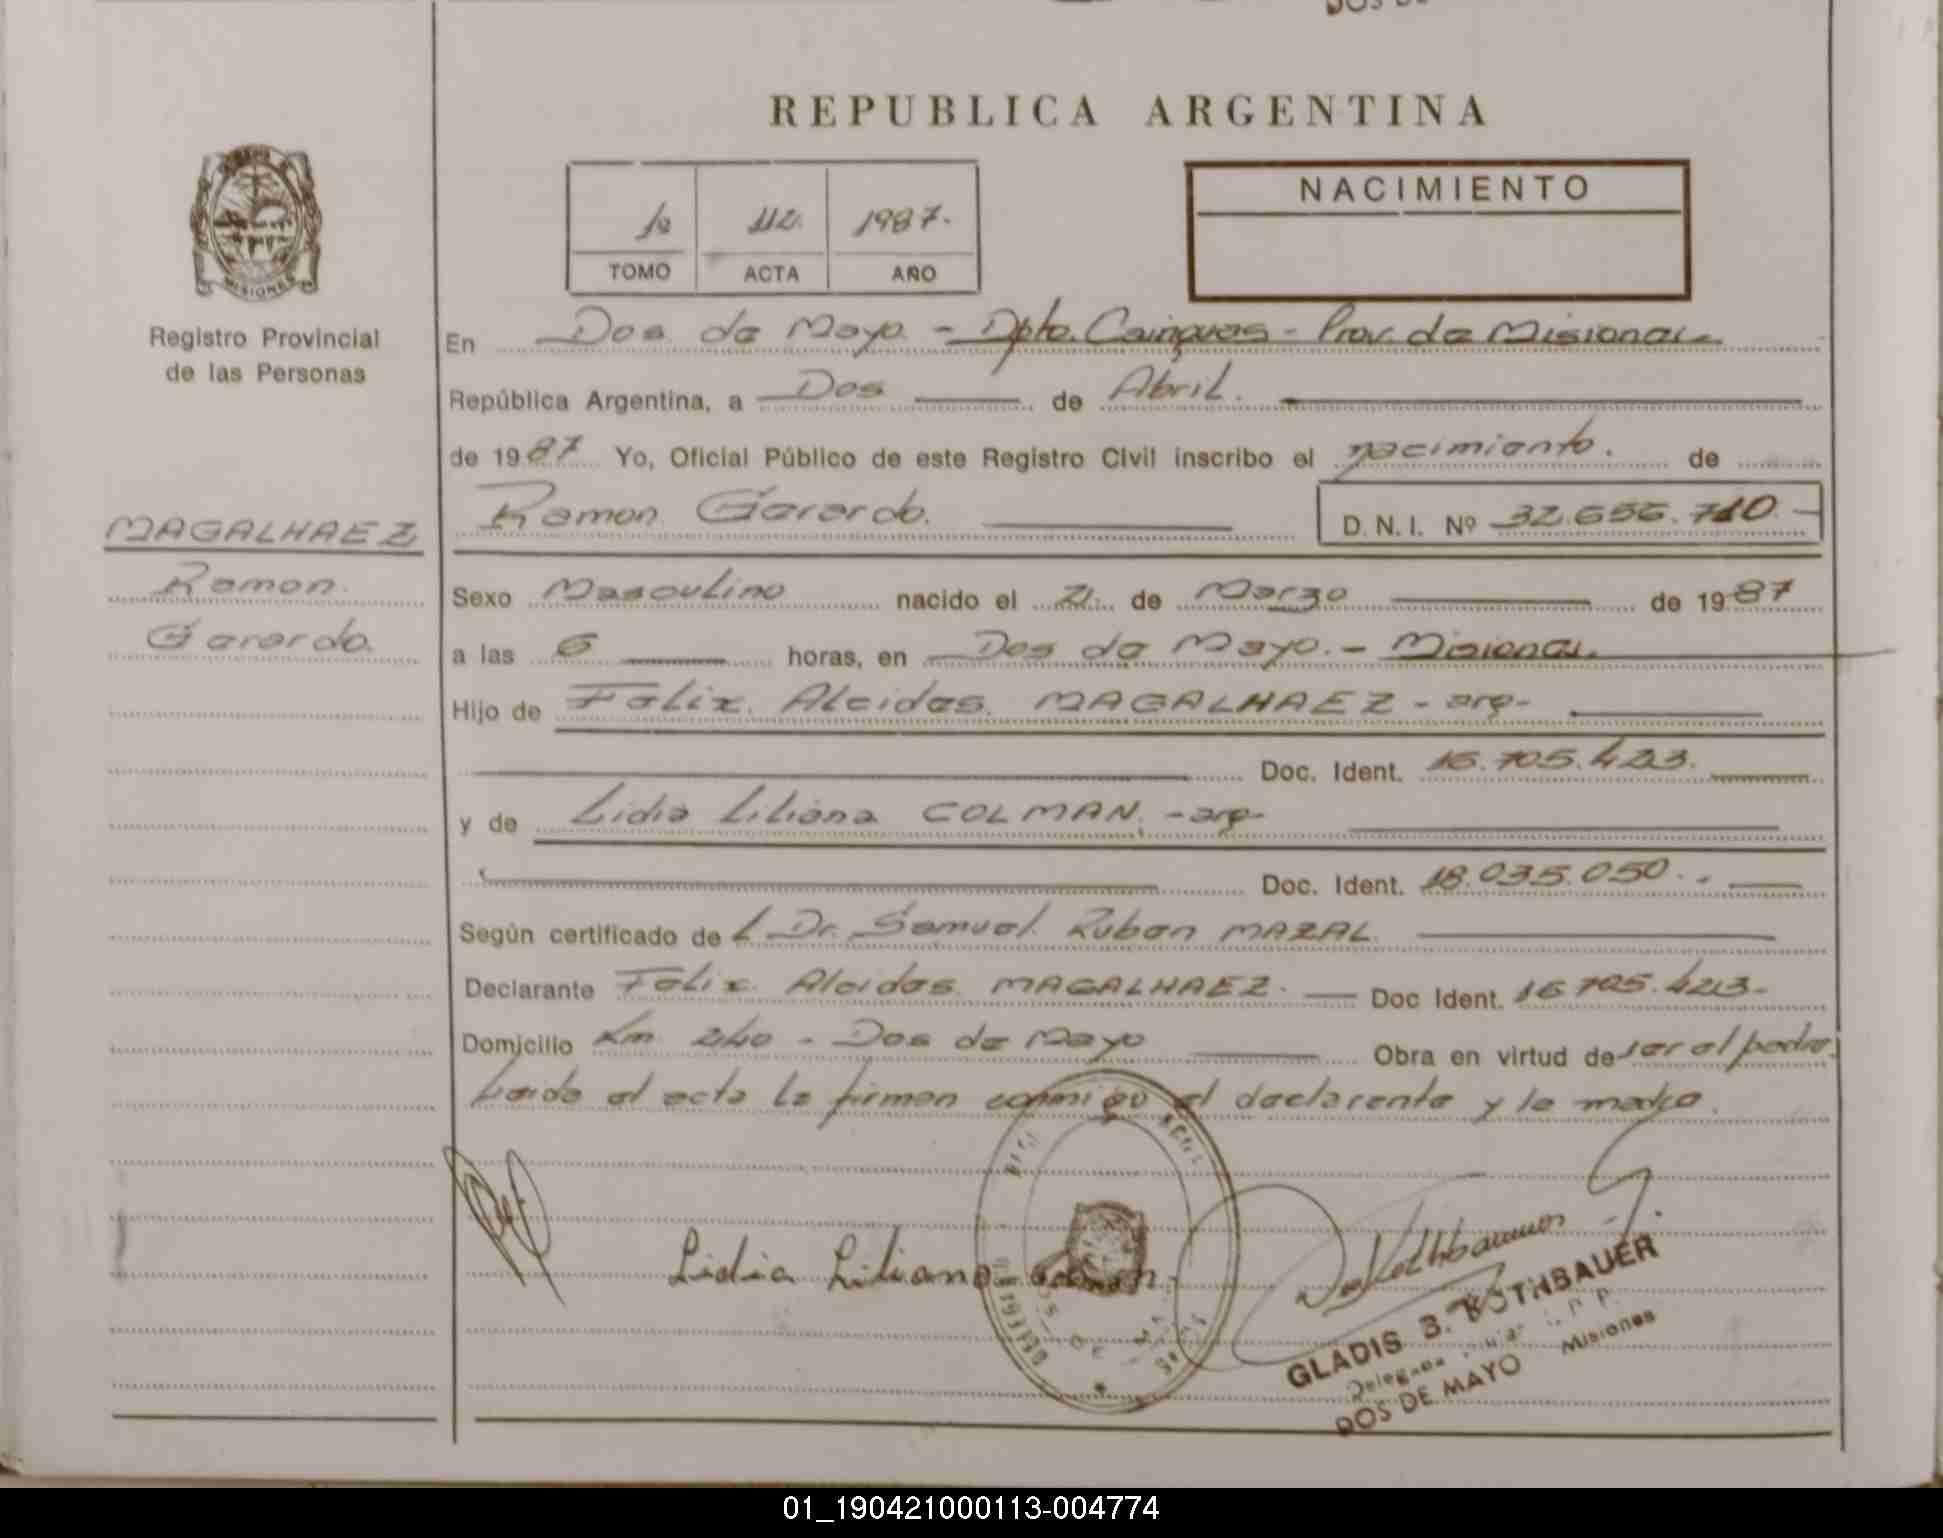 REPUBLICA ARGENTINA
1º 112. 1987.
TOMO ACTA AÑO
NACIMIENTO
MISIONES
Registro Provincial
de las Personas
En Dos de Mayo - Dpto. Cainguas - Prov. de Misiones
República Argentina, a Dos de Abril.
de 1987 Yo, Oficial Público de este Registro Civil inscribo el nacimiento. de
Ramon Gerardo. D.N.I. Nº 32.656.710
MAGALHAEZ
Ramon
Gerardo.
Sexo Masculino nacido el 21. de Marzo de 1987
a las 6 horas, en Dos de Mayo. - Misiones.
Hijo de Felix Alcides MAGALHAEZ - arg-
Doc. Ident. 16.705.423.
y de Lidia Liliana COLMAN. - arg-
Doc. Ident. 18.035.050.
Según certificado del Dr. Samuel Ruben MAZAL
Declarante Felix Alcides MAGALHAEZ. Doc Ident. 16 705.423-
Domicilio Km 240 - Dos de Mayo Obra en virtud de ser el padre.
Leida el acta la firman conmigo el declarante y la madre.
Lidia Liliana
GLADIS B. ROTHBAUER
Delegada
DOS DE MAYO Misiones
01_190421000113-004774